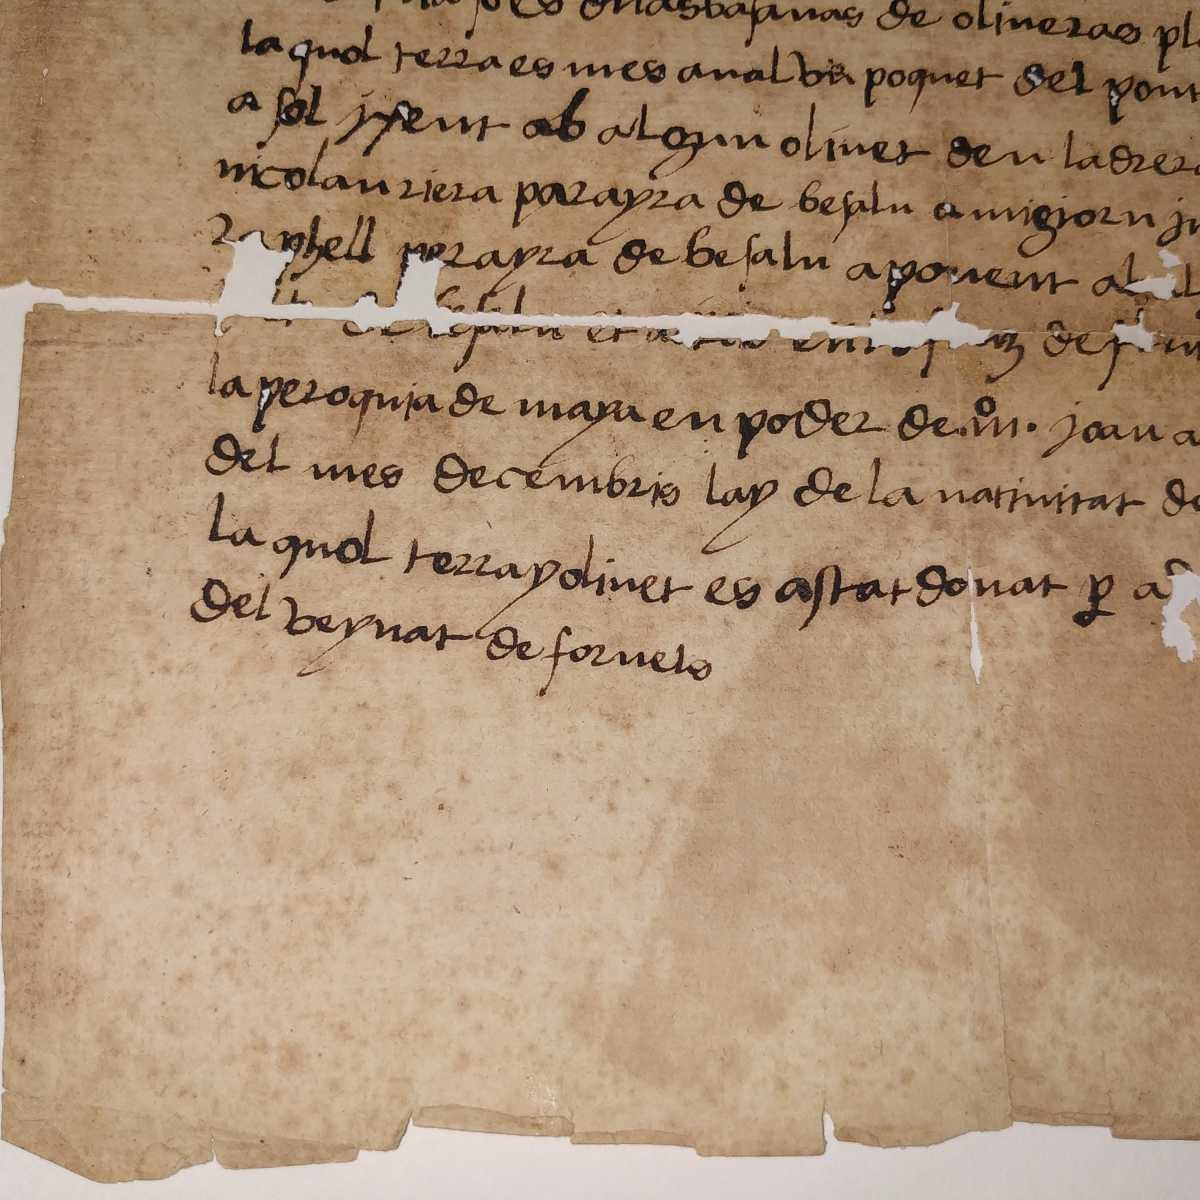 es duas vasanas de oliueras pl
la quol terra es mes aual vn poquet del pont
a sol jxent ab algun oliuet den ladrera
nicolau riera parayra de besalu a migiorn
raphell perayra de besalu a ponent al
de besalu et de
la peroquia de maya en poder de .mº. joan a
del mes decembris lay de la natiuitat de
la quol terra y oliuet es astat donat ꝑ a
del veynat de fornels